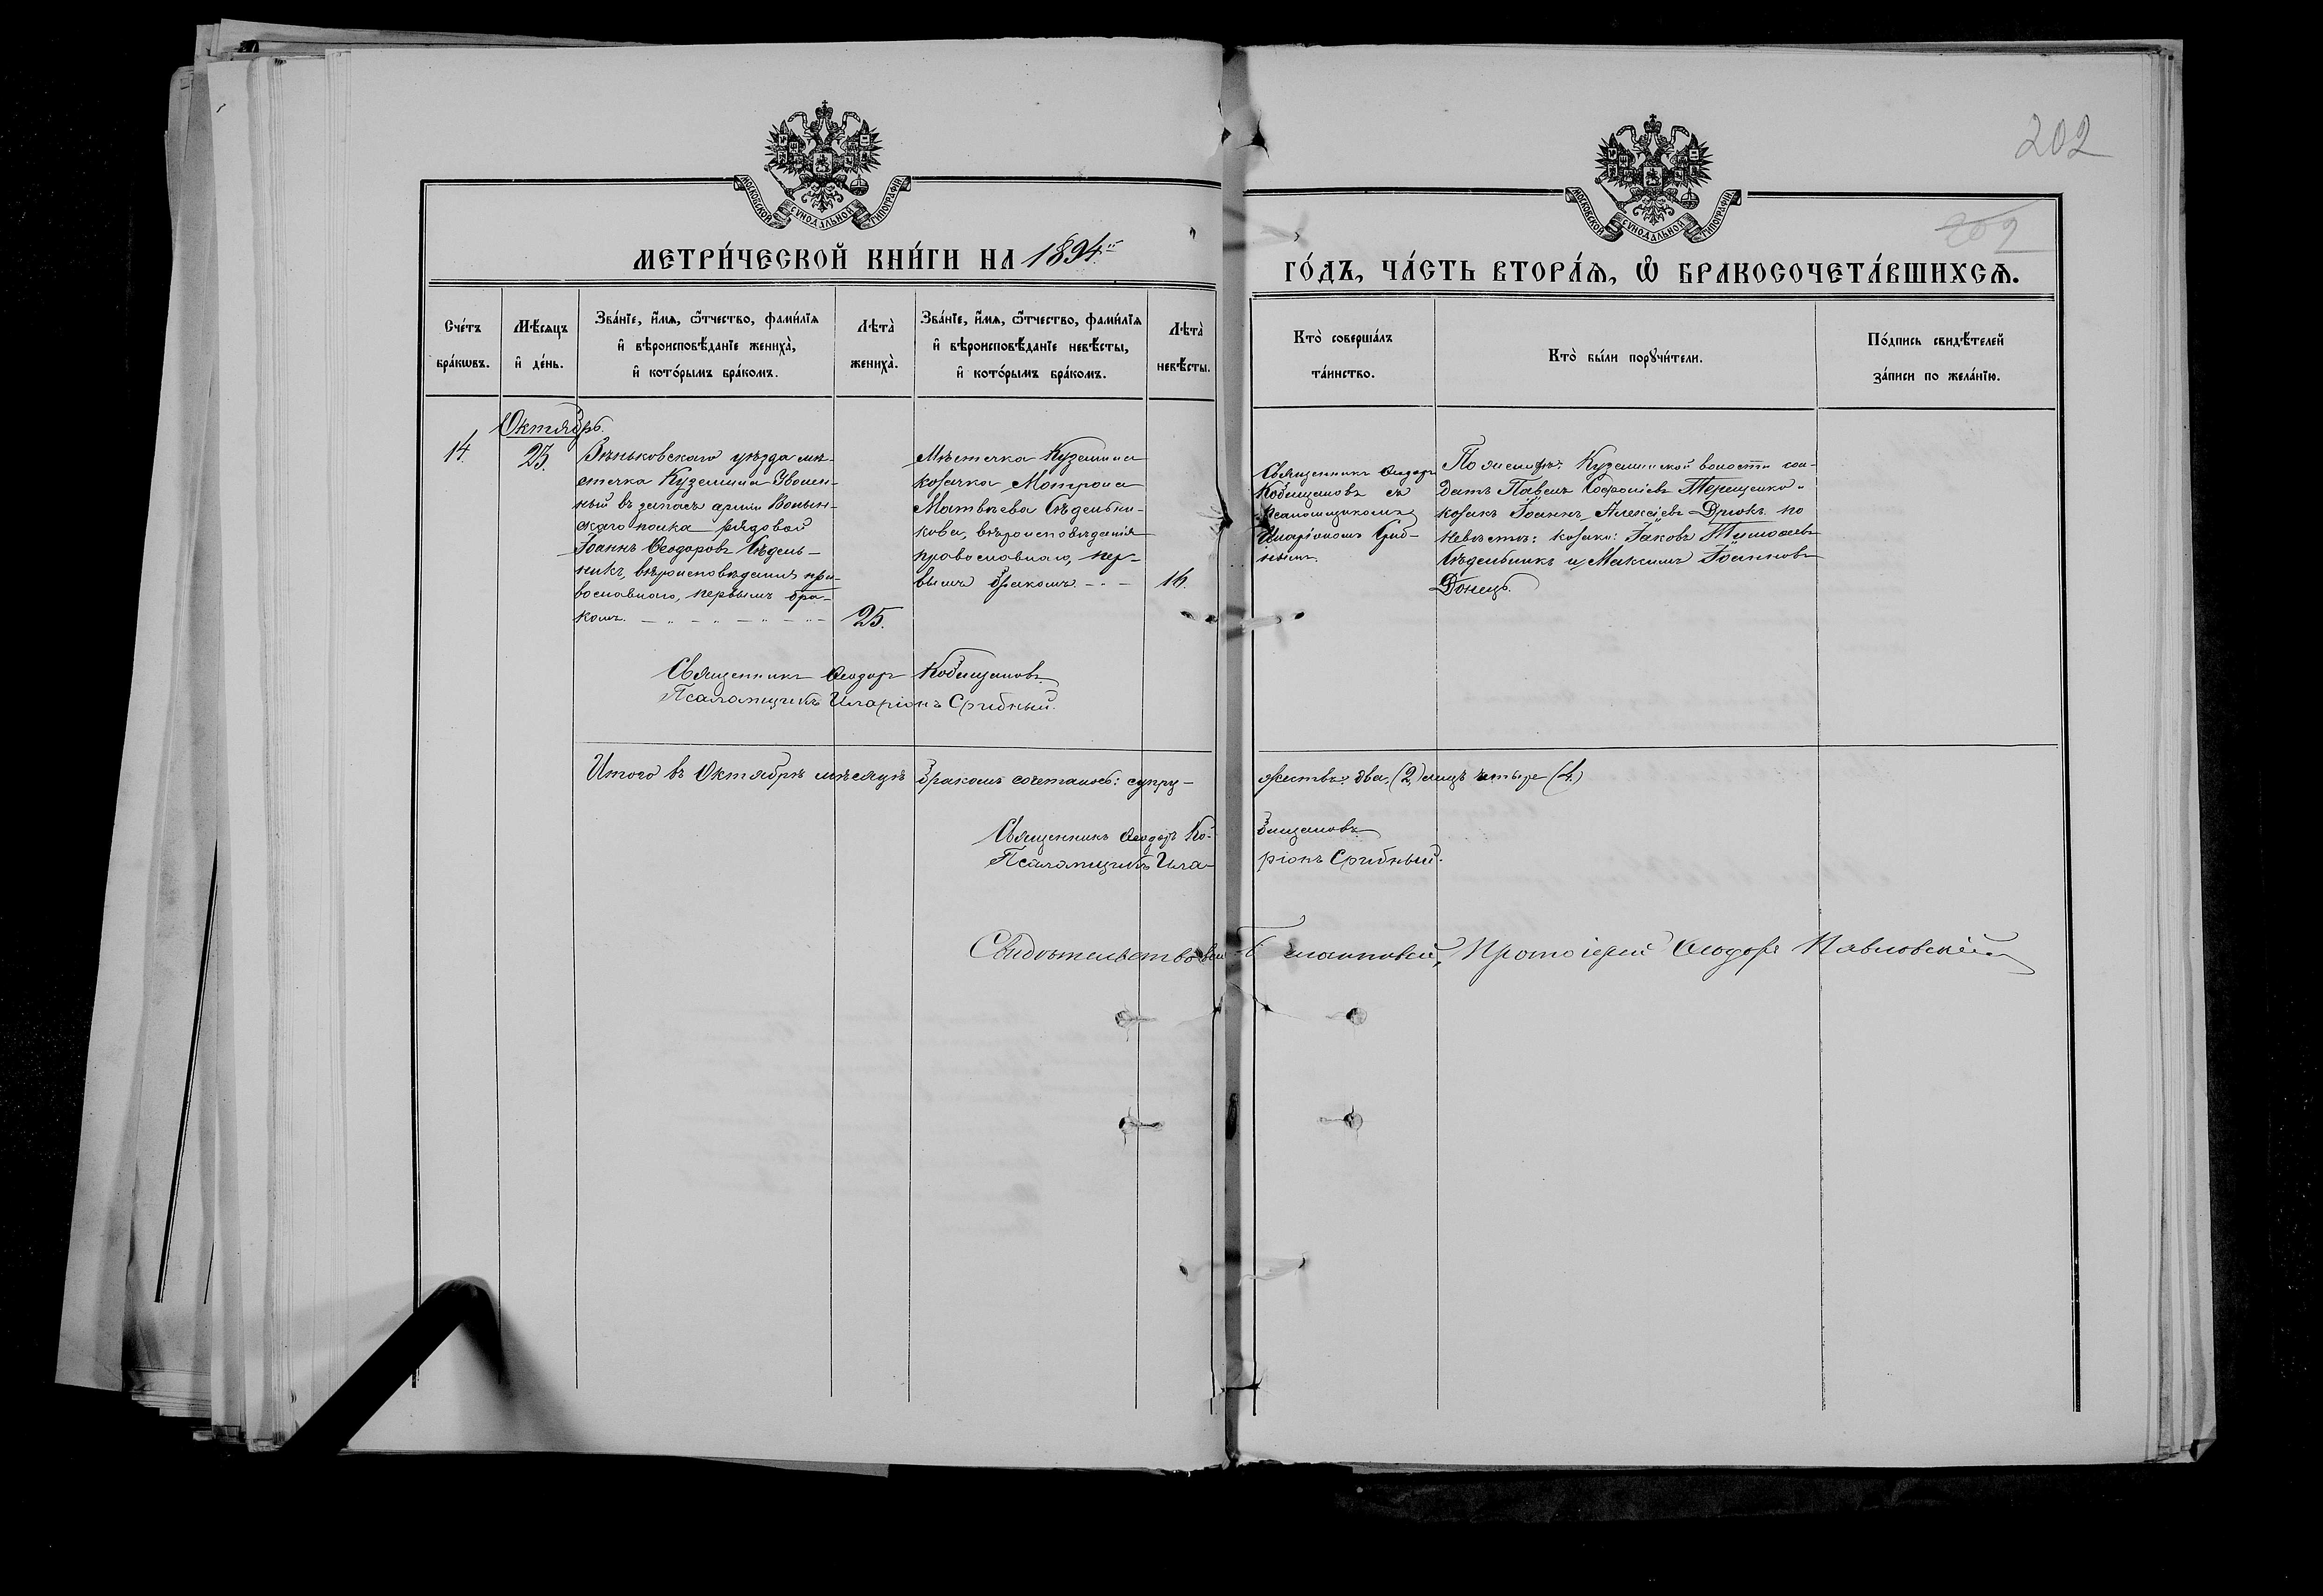 202
202
МОСКОВСКОЙ СѴНОДАЛЬНОЙ ТИПОГРАФІИ
МОСКОВСКОЙ СѴНОДАЛЬНОЙ ТИПОГРАФІИ
МЕТРИ́ЧЕСКОЙ КНИ́ГИ НА 1894й
ГО́ДЪ, ЧА́СТЬ ВТОРА́Я, Ѡ БРАКОСОЧЕТА́ВШИХСѦ.
Сче́тъ бра́кѡвъ.
Мѣ́сѧцъ и҆ де́нь.
Зва́нїе, и҆́мѧ, ѻ҆́тчество, фами́лїѧ и҆ вѣроисповѣ́данїе жениха̀, и҆ кото́рымъ бра́комъ.
Лѣта̀ жениха̀.
Зва́нїе, и҆́мѧ, ѻ҆́тчество, фами́лїѧ и҆ вѣроисповѣ́данїе невѣ́сты, и҆ кото́рымъ бра́комъ.
Лѣта̀ невѣ́сты.
Кто̀ соверша́лъ та́инство.
Кто̀ бы́ли порꙋчи́тели.
По́дпись свидѣ́телей за́писи по жела́нїю.
Октябрь.
14.
23.
Зѣньковскаго уѣзда мѣ-
стечка Куземина Уволен-
ный въ запасъ арміи Волын-
скаго полка рядовой
Іоаннъ Ѳеодоровъ Сѣдель-
никъ, вѣроисповѣданія пра-
вославнаго, первымъ бра-
комъ.
25.
Мѣстечка Куземина
козачка Матрона
Матвѣева Сѣдельни-
кова, вѣроисповѣданія
православнаго, пер-
вымъ бракомъ
16.
Священникъ Ѳеодоръ
Кобищановъ съ
псаломщикомъ
Иларіономъ Сриб-
нымъ.
По женихѣ: Куземинской волости сол-
датъ Павелъ Терещенко и
козакъ Іоаннъ Алексіевъ Дрюкъ. по
невѣстѣ: козаки: Іаковъ Тимоѳеевъ
Сѣдельникъ и Максимъ Іоанновъ
Донецъ.
Священникъ Ѳеодоръ Кобищановъ.
Псаломщикъ Иларіонъ Срибный.
Итого въ Октябрѣ мѣсяцѣ бракомъ сочеталось: супру-
жествъ два (2) лицъ четыре (4.)
Священникъ Ѳеодоръ Ко-
бищановъ.
Псаломщикъ Ила-
ріонъ Срибный.
Свидѣтельствовалъ Благочинный, Протоіерей Ѳеодоръ Павловскій